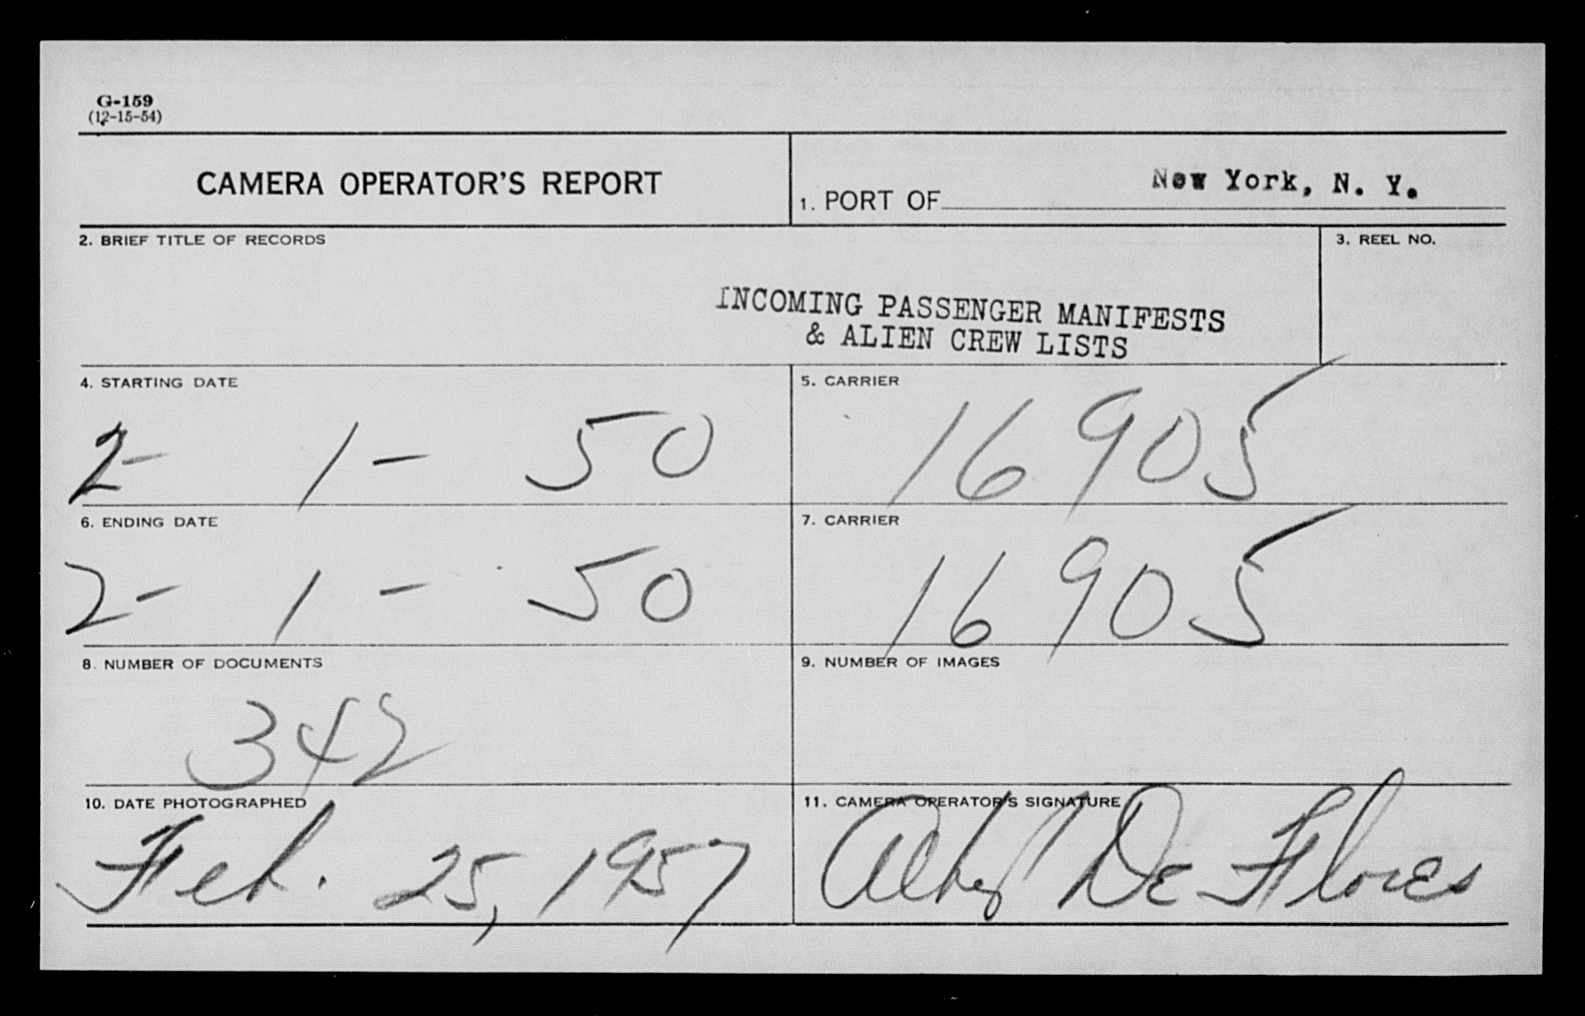 G-159
(12-15-54)
CAMERA OPERATOR'S REPORT
1. PORT OF New York, N. Y.
2. BRIEF TITLE OF RECORDS
3. REEL NO.
INCOMING PASSENGER MANIFESTS
& ALIEN CREW LISTS
4. STARTING DATE
5. CARRIER
2- 1- 50
16905
6. ENDING DATE
7. CARRIER
2- 1- 50
16905
8. NUMBER OF DOCUMENTS
9. NUMBER OF IMAGES
342
10. DATE PHOTOGRAPHED
11. CAMERA OPERATOR'S SIGNATURE
Feb. 25, 1957
De Flores